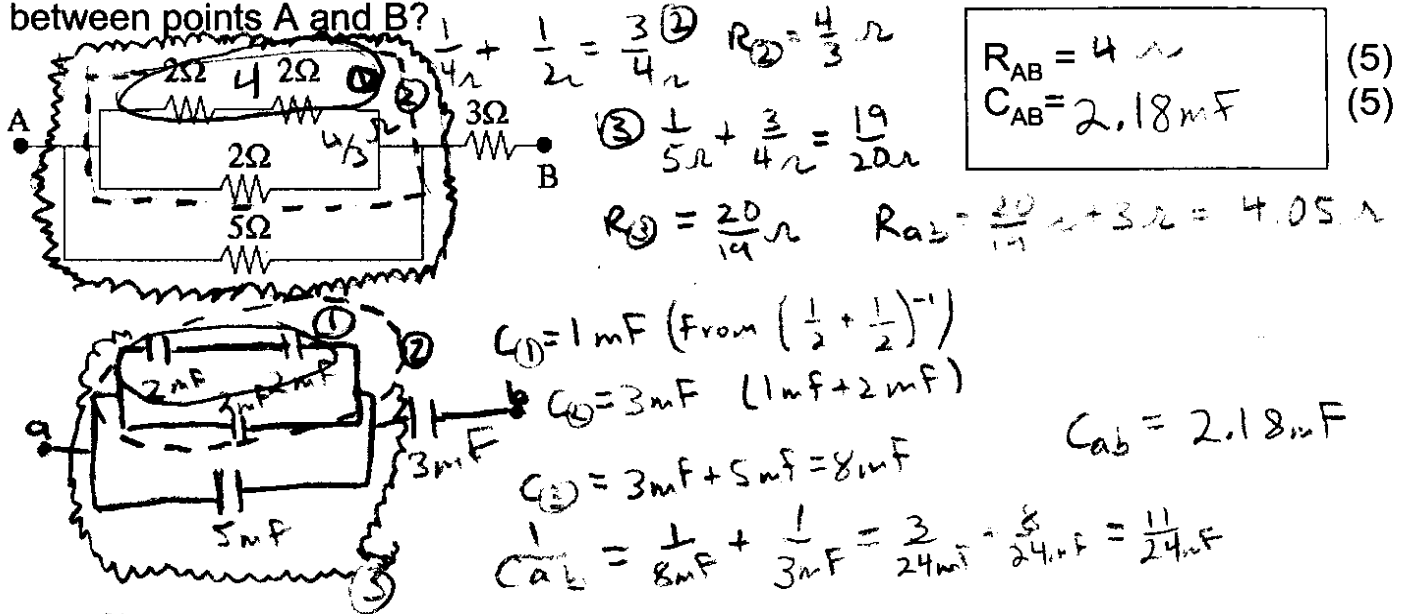 between points A and B?
1/4Ω + 1/2Ω = 3/4Ω ② R② = 4/3 Ω
R_AB = 4 Ω (5)
C_AB = 2.18mF (5)
2Ω 4 2Ω ① ②
A 4/3 Ω 3Ω B
2Ω
5Ω
③ 1/5Ω + 3/4Ω = 19/20Ω
R③ = 20/19 Ω Rab = 20/19 Ω + 3Ω = 4.05 Ω
① ②
2mF 2mF
a b
3mF
5mF
③
C① = 1mF (From (1/2 + 1/2)⁻¹)
C② = 3mF (1mF + 2mF)
Cab = 2.18mF
= 3mF + 5mF = 8mF
1/Cab = 1/8mF + 1/3mF = 3/24mF 8/24mF = 11/24mF